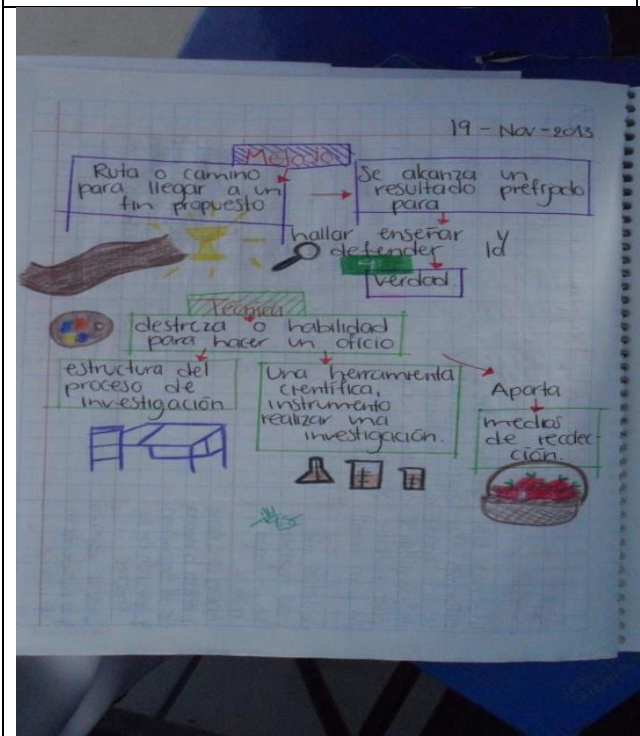 19 - Nov - 2013.
Metodo
Ruta o camino
para llegar a un
fin propuesto
Se alcanza un
resultado prefijado
para
hallar enseñar y
defender la
verdad.
Técnica
destreza o habilidad
para hacer un oficio
estructura del
proceso de
investigación
Una herramienta
científica,
instrumento
realizar una
investigación.
Aporta
medios
de recolec-
ción.